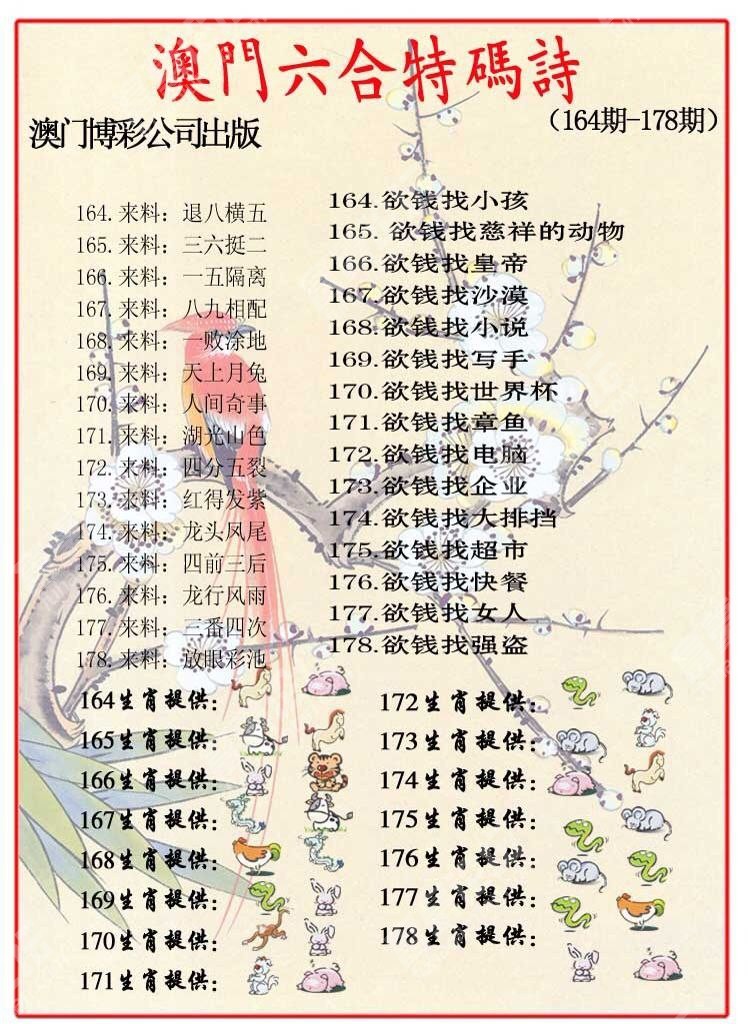 澳門六合特碼詩
澳门博彩公司出版
（164期-178期）
164.来料：退八横五
165.来料：三六挺二
166.来料：一五隔离
167.来料：八九相配
168.来料：一败涂地
169.来料：天上月兔
170.来料：人间奇事
171.来料：湖光山色
172.来料：四分五裂
173.来料：红得发紫
174.来料：龙头风尾
175.来料：四前三后
176.来料：龙行风雨
177.来料：三番四次
178.来料：放眼彩池
164.欲钱找小孩
165.欲钱找慈祥的动物
166.欲钱找皇帝
167.欲钱找沙漠
168.欲钱找小说
169.欲钱找写手
170.欲钱找世界杯
171.欲钱找章鱼
172.欲钱找电脑
173.欲钱找企业
174.欲钱找大排挡
175.欲钱找超市
176.欲钱找快餐
177.欲钱找女人
178.欲钱找强盗
164生肖提供：
165生肖提供：
166生肖提供：
167生肖提供：
168生肖提供：
169生肖提供：
170生肖提供：
171生肖提供：
172生肖提供：
173生肖提供：
174生肖提供：
175生肖提供：
176生肖提供：
177生肖提供：
178生肖提供：